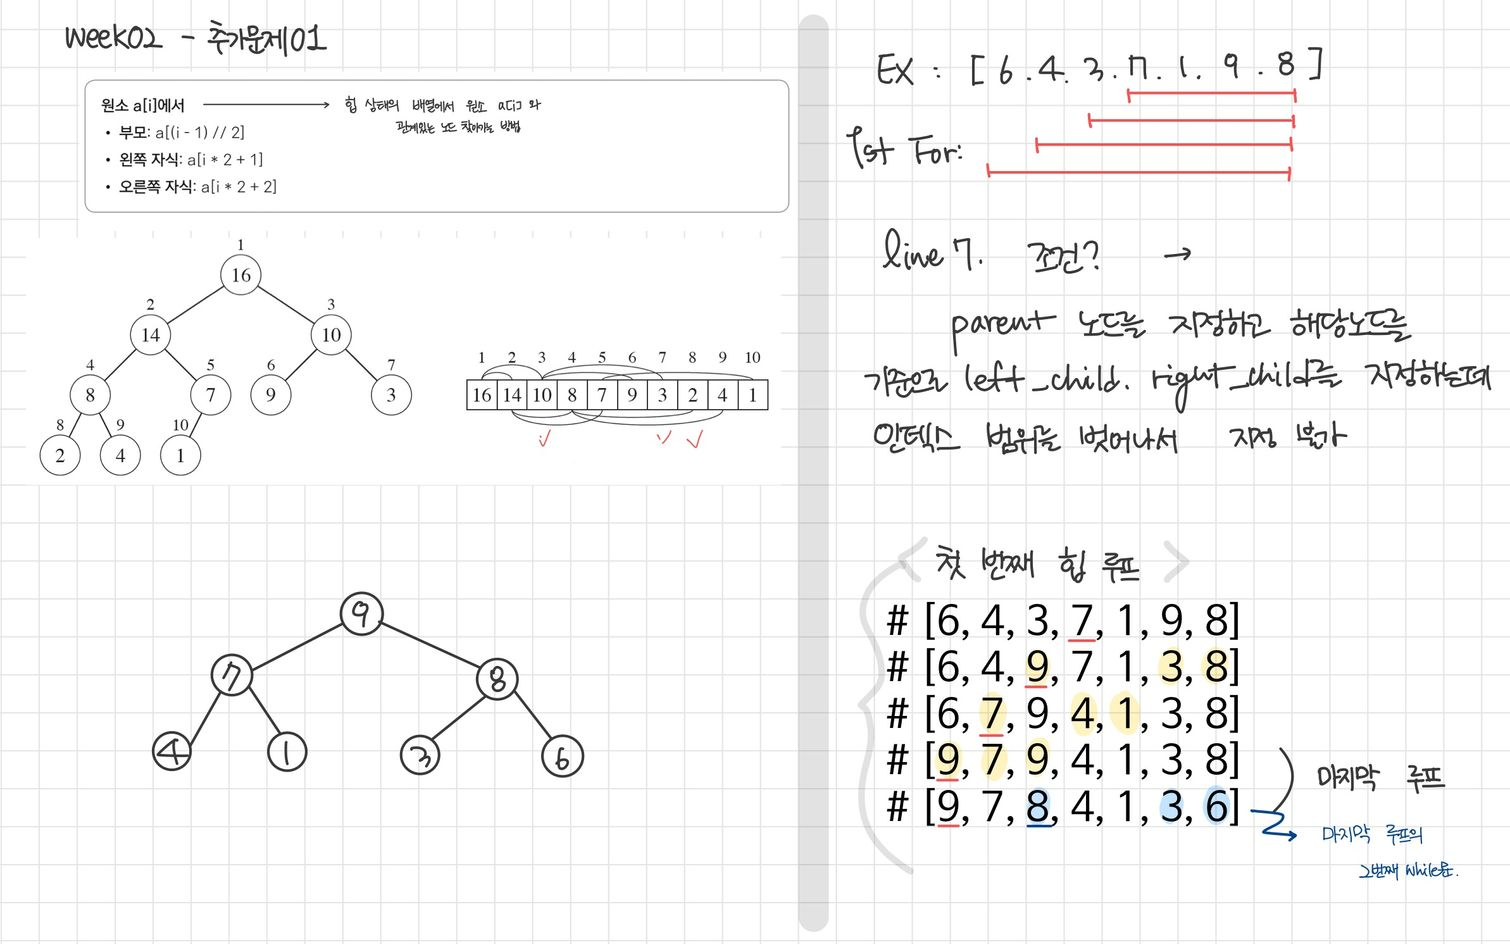 Week02 - 추가문제01
원소 a[i]에서 → 힙 상태의 배열에서 원소 a[i]와
관계있는 노드 찾아가는 방법
• 부모: a[(i - 1) // 2]
• 왼쪽 자식: a[i * 2 + 1]
• 오른쪽 자식: a[i * 2 + 2]
1
16
2 3
14 10
4 5 6 7
8 7 9 3
8 9 10
2 4 1
1 2 3 4 5 6 7 8 9 10
16 14 10 8 7 9 3 2 4 1
9
7 8
4 1 3 6
EX : [6. 4. 3. 7. 1. 9. 8]
1st For:
line 7. 조건? →
parent 노드를 지정하고 해당노드를
기준으로 left_child. right_child를 지정하는데
인덱스 범위를 벗어나서 지정 불가
< 첫 번째 힙 루프 >
# [6, 4, 3, 7, 1, 9, 8]
# [6, 4, 9, 7, 1, 3, 8]
# [6, 7, 9, 4, 1, 3, 8]
# [9, 7, 9, 4, 1, 3, 8]
# [9, 7, 8, 4, 1, 3, 6]
마지막 루프
마지막 루프의
2번째 While문.